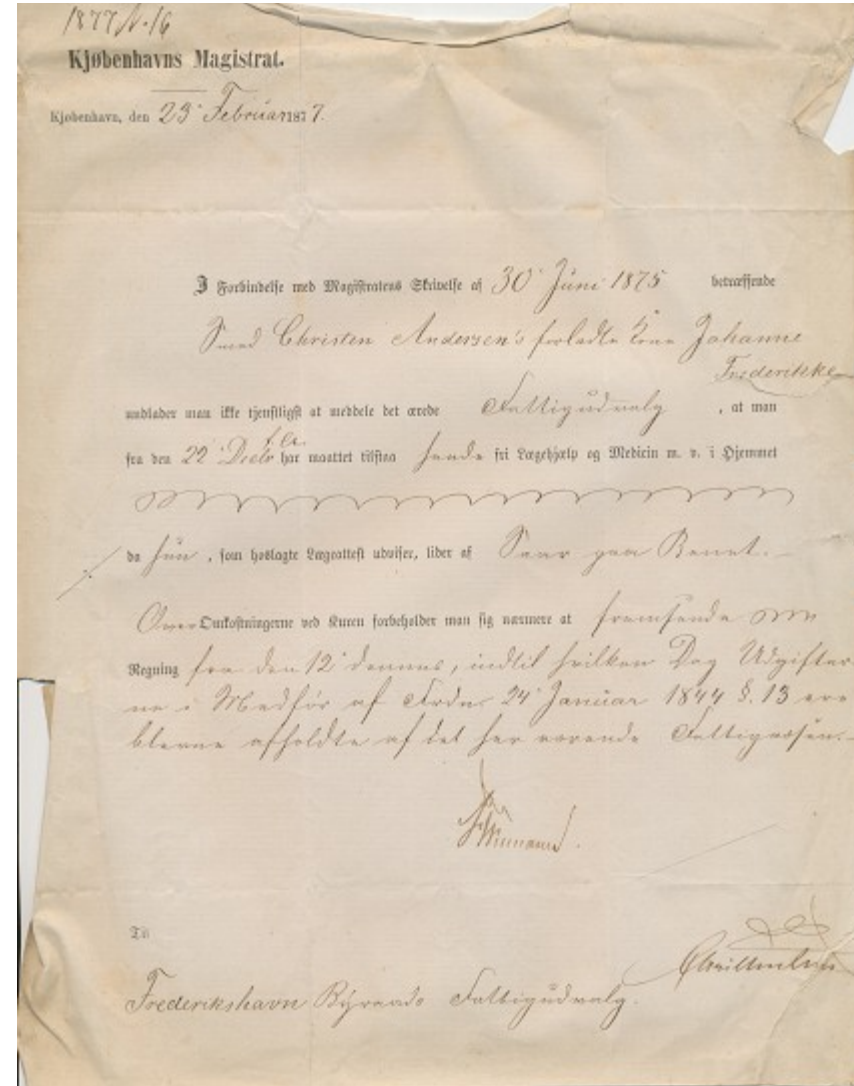 1877 N. 16
Kjøbenhavns Magistrat.
Kjøbenhavn, den 23' Februar 1877.
I Forbindelse med Magistratens Skrivelse af 30' Juni 1875 betræffende
Smed Christen Andersen's forladte Kone Johanne
Frederikke
undlader man ikke tjenstligst at meddele det ærede Fattigudvalg, at man
f. A.
fra den 22' Decbr har maattet tilstaa hende fri Lægehjælp og Medicin m. v. i Hjemmet
da hun, som hoslagte Lægeattest udviser, lider af Saar paa Benet.
Over Omkostningerne ved Kuren forbeholder man sig nærmere at fremsende
Regning fra den 12' dennes, indtil hvilken Dag Udgifter
ne i Medfør af Frdn. 24' Januar 1844 §. 13 ere
blevne afholdte af det her værende Fattigvæsen.
Til
Frederikshavn Byraads Fattigudvalg.